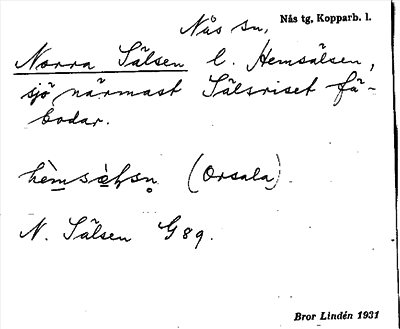 Nås sn, Nås tg, Kopparb. l.
Norra Sälsen l. Hemsälsen,
sjö närmast Sälsriset fä-
bodar.
hèmsèɫsn̥ (Orsala).
N. Sälsen G89.
Bror Lindén 1931